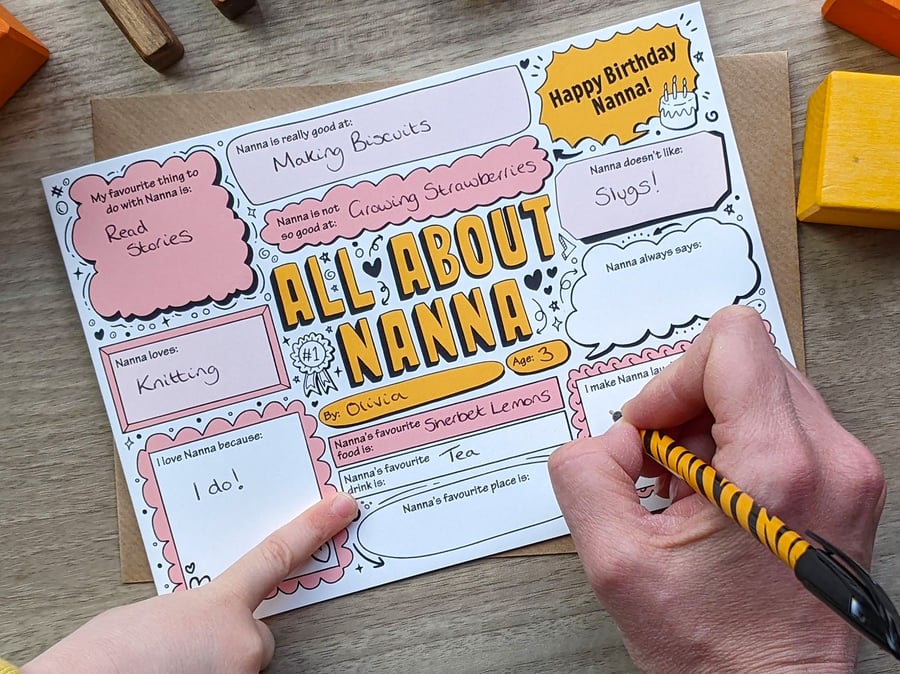 Happy Birthday
Nanna!
Nanna is really good at:
Making Biscuits
My favourite thing to
do with Nanna is:
Read
Stories
Nanna is not
so good at:
Growing Strawberries
Nanna doesn't like:
Slugs!
ALL ABOUT
NANNA
#1
Nanna always says:
Nanna loves:
Knitting
By: Olivia
Age: 3
I make Nanna
Nanna's favourite
food is:
Sherbet Lemons
I love Nanna because:
I do!
Nanna's favourite
drink is:
Tea
Nanna's favourite place is: